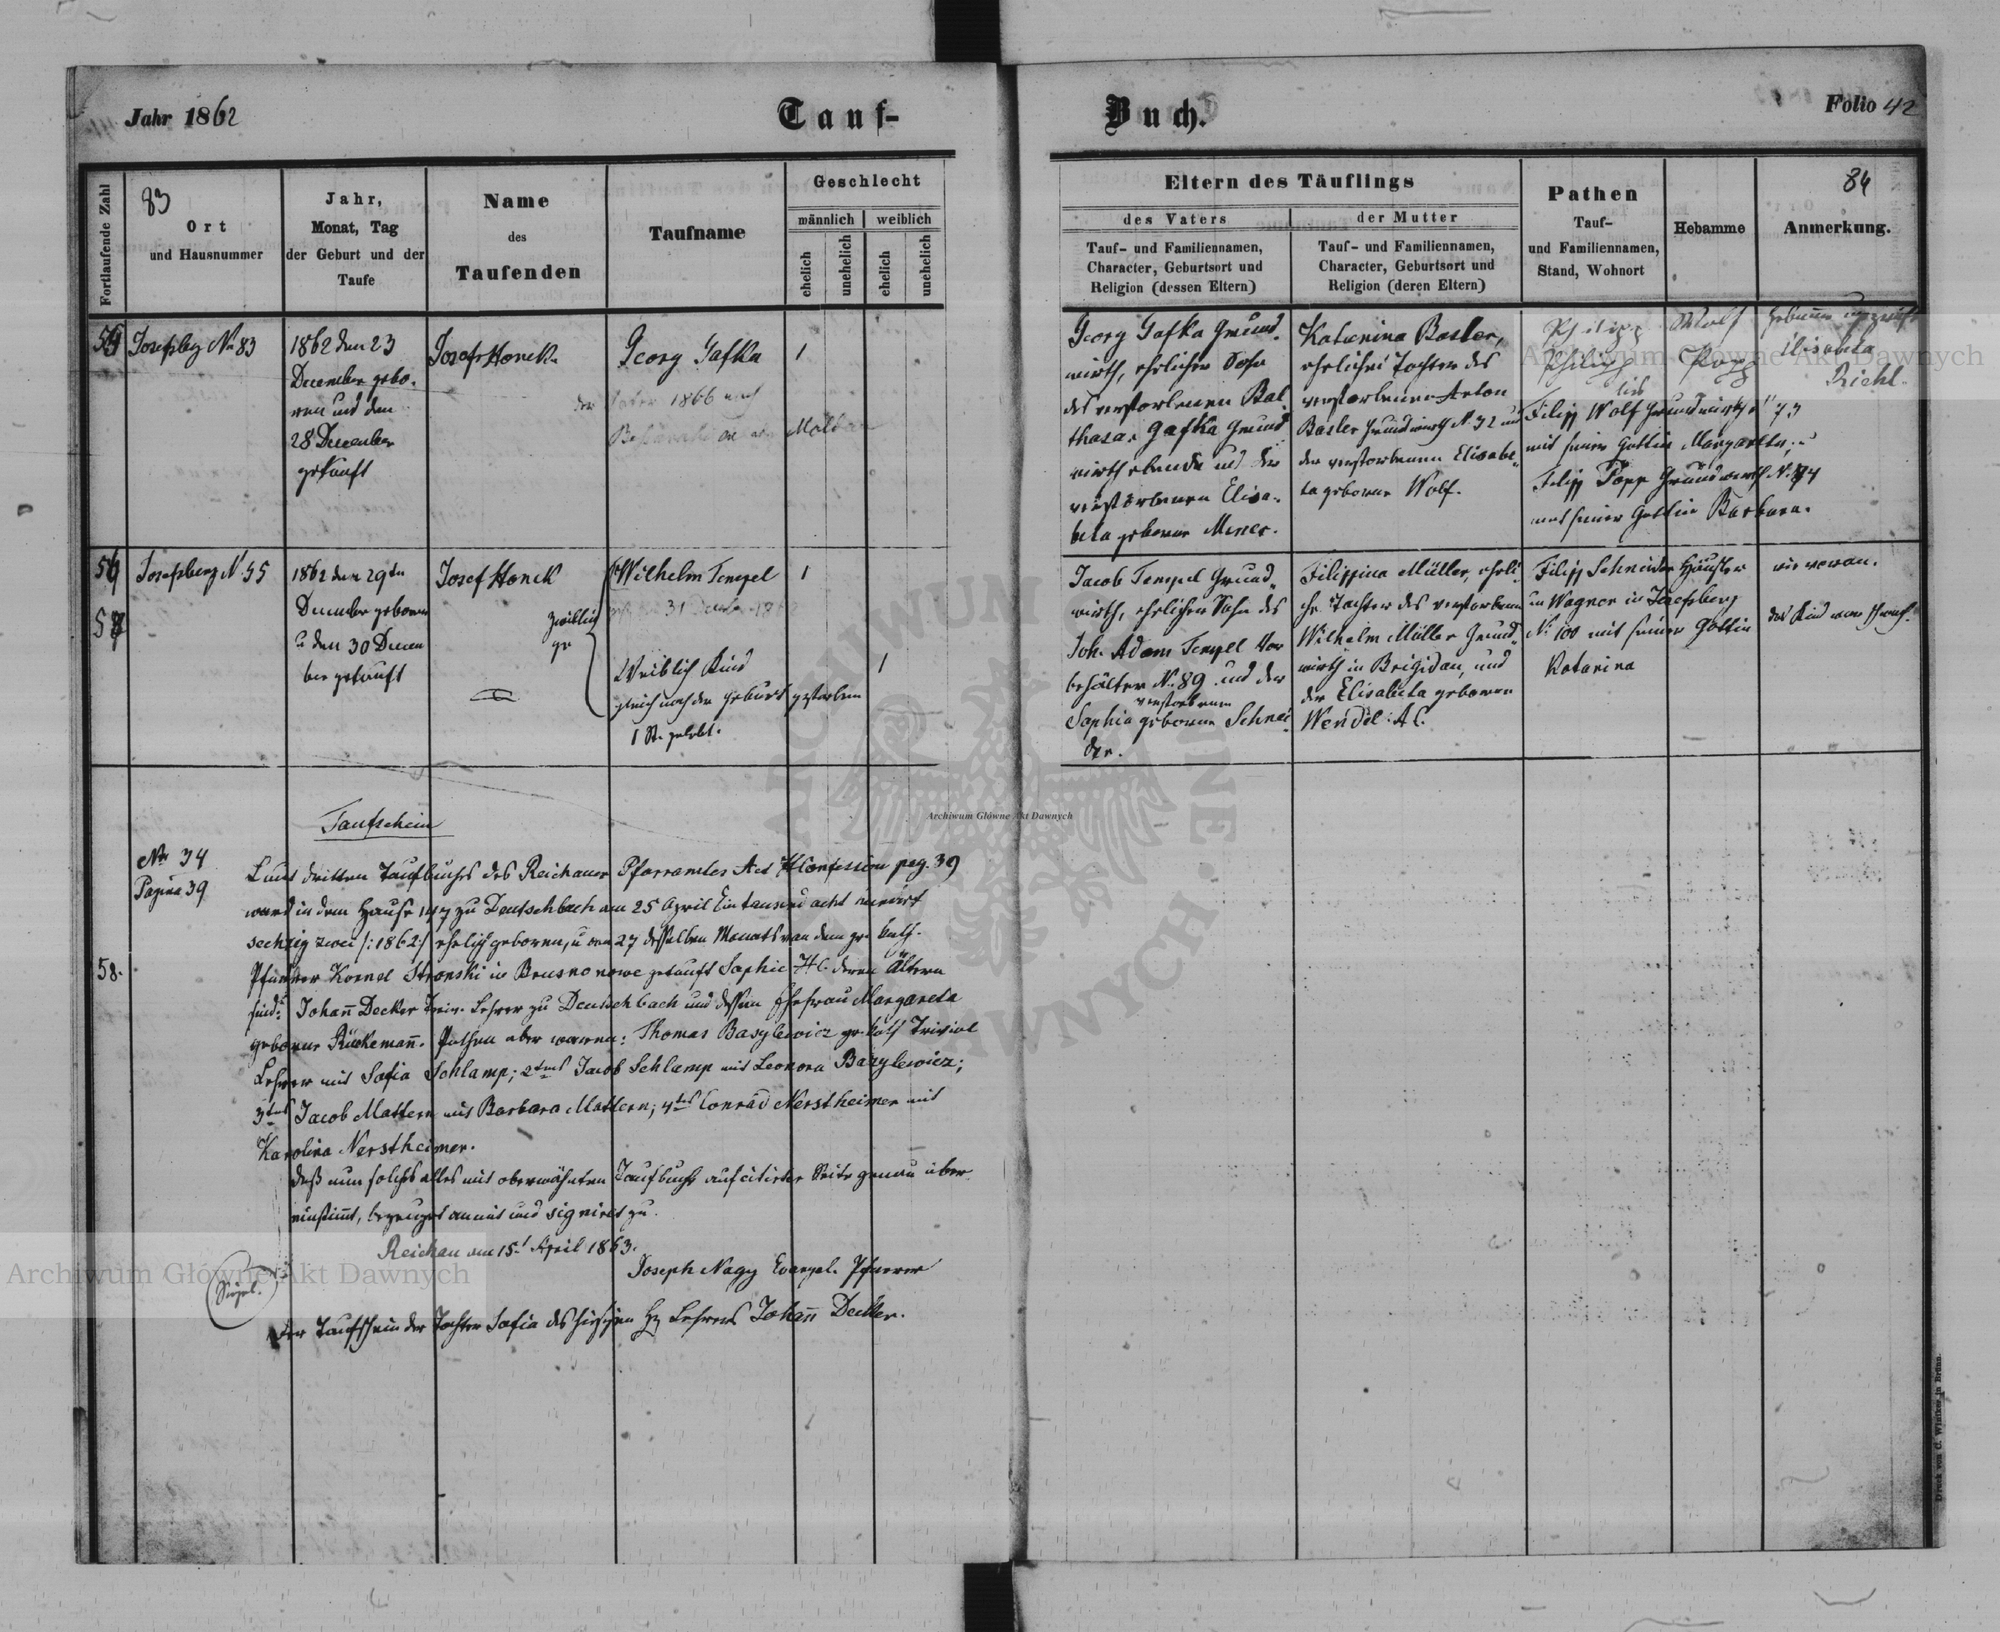 Jahr 1862
Tauf-
Buch.
Folio 42
Fortlaufende Zahl
83
Ort
und Hausnummer
Jahr,
Monat, Tag
der Geburt und der
Taufe
Name
des
Taufenden
Taufname
Geschlecht
männlich
weiblich
ehelich
unehelich
ehelich
unehelich
Eltern des Täuflings
des Vaters
Tauf- und Familiennamen,
Character, Geburtsort und
Religion (dessen Eltern)
der Mutter
Tauf- und Familiennamen,
Character, Geburtsort und
Religion (deren Eltern)
Pathen
Tauf-
und Familiennamen,
Stand, Wohnort
Hebamme
84
Anmerkung.
Josefsberg No 83
1862 den 23
December gebo-
ren und den
28 December
getauft
Josef Honek
Georg Gafka
1866 nach
1
Georg Gafka Grund-
wirth, ehelicher Sohn
des verstorbenen Bal-
thasar Gafka Grund
wirth und der
verstorbenen Elisa-
beta geborne
Katarina Basler,
eheliche Tochter des
verstorbenen Anton
Basler Grundwirth No 32 und
der verstorbenen Elisabe-
ta geborne Wolf.
Philipp Wolf
Philipp Popp
Filipp Wolf Grundwirth 73
mit seiner Gattin Margaretha, u
Filipp Popp Grundwirth No
mit seiner Gattin Barbara.
Hebamme
Elisabeta
Diehl.
57
Josefsberg No 55
1862 den 29ten
December geboren
u den 30 Decem
ber getauft
Josef Honek
Zwillin
ge
Wilhelm Tempel
Weiblich Kind
gleich nach der Geburt gestorben
1 St. gelebt.
1
1
Jacob Tempel Grund-
wirth, ehelicher Sohn des
Joh. Adam Tempel Vor
behälter No 89 und der
verstorbenen
Sophia geborne Schnei-
der.
Filippina Müller, eheli-
che Tochter des verstorbenen
Wilhelm Müller Grund-
wirth in Brigidau, und
der Elisabeta geboren
Wendel: A.C.
Filipp Schneider Häusler
u Wagner in Josefsberg
No 100 mit seiner Gattin
Katarina
wie voran.
das Kind war schwach.
Taufschein
Nr 34
Pagina 39
58.
Laut dritten Taufbuchs des Reichauer Pfarramtes A et H Confession pag. 39
ward in dem Hause No 7 zu Deutschbach am 25 April Eintausend acht hundert
sechzig zwei /:1862:/ ehelich geboren, u am 27 desselben Monats von dem gr. kath.
Pfarrer Kornel Stronski in Brusno nowe getauft Sophie H.C. deren Ältern
sind: Johañ Decker Lehrer zu Deutschbach und dessen Ehefrau Margareta
geborne Rückemañ. Pathen aber waren: Thomas Basylewicz gr. kath Trivial
Lehrer mit Sofia Schlamp; 2tens Jacob Schlamp mit Leonora Bazylewicz;
3tens Jacob Mattern mit Barbara Mattern; 4tens Conrad Nerstheimer mit
Karolina Nerstheimer.
Daß nun solches alles mit oberwähnten Taufbuche auf citirter Seite genau über-
einstimt, bezeuget anmit und signirt zu
Reichau am 15t April 1863.
Siegel.
Joseph Nagy Evangel. Pfarrer
Der Taufschein der Tochter Sofia des hiesigen Lehrers Johañ Decker.
Archiwum Główne Akt Dawnych
Archiwum Główne Akt Dawnych
Archiwum Główne Akt Dawnych
Druck von C. Winiker in Brünn.